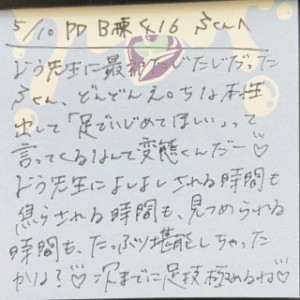 5/10 PD B東 416 Sくんへ
どう先生に最初たじたじだった
Sくん、どんどんえっちな本性
出して「足でいじめてほしい」って
言ってくるなんて変態くんだー♡
どう先生によしよしされる時間も
焦らされる時間も、見つめられる
時間も、たっぷり堪能しちゃった
かな?♡ 次までに足技極めるね♡